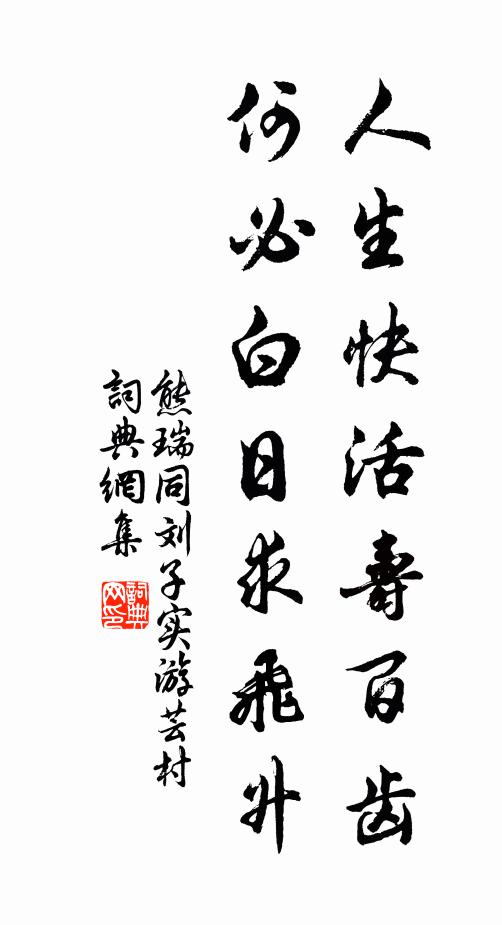 人生快活壽百齿
何必白日求飛升
熊瑞同刘子实游芸村
詞典網集
詞典网印